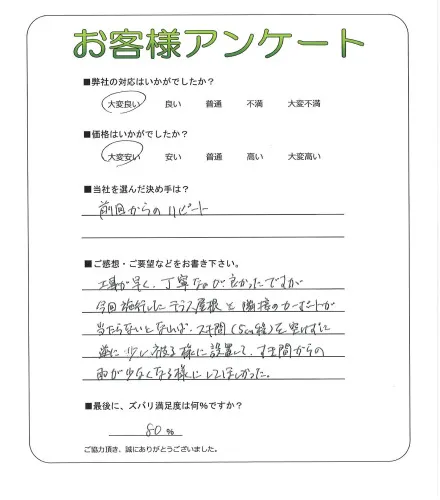 お客様アンケート
■弊社の対応はいかがでしたか？
大変良い 良い 普通 不満 大変不満
■価格はいかがでしたか？
大変安い 安い 普通 高い 大変高い
■当社を選んだ決め手は？
前回からのリピート
■ご感想・ご要望などをお書き下さい。
工事が早く、丁寧なのが良かったですが
今回施行したテラス屋根と隣接のカーポートが
当たらないとなれば、スキ間（5cm程）を空けずに
逆に少し被る様に設置して、すき間からの
雨が少なくなる様にしてほしかった。
■最後に、ズバリ満足度は何%ですか？
80 %
ご協力頂き、誠にありがとうございました。